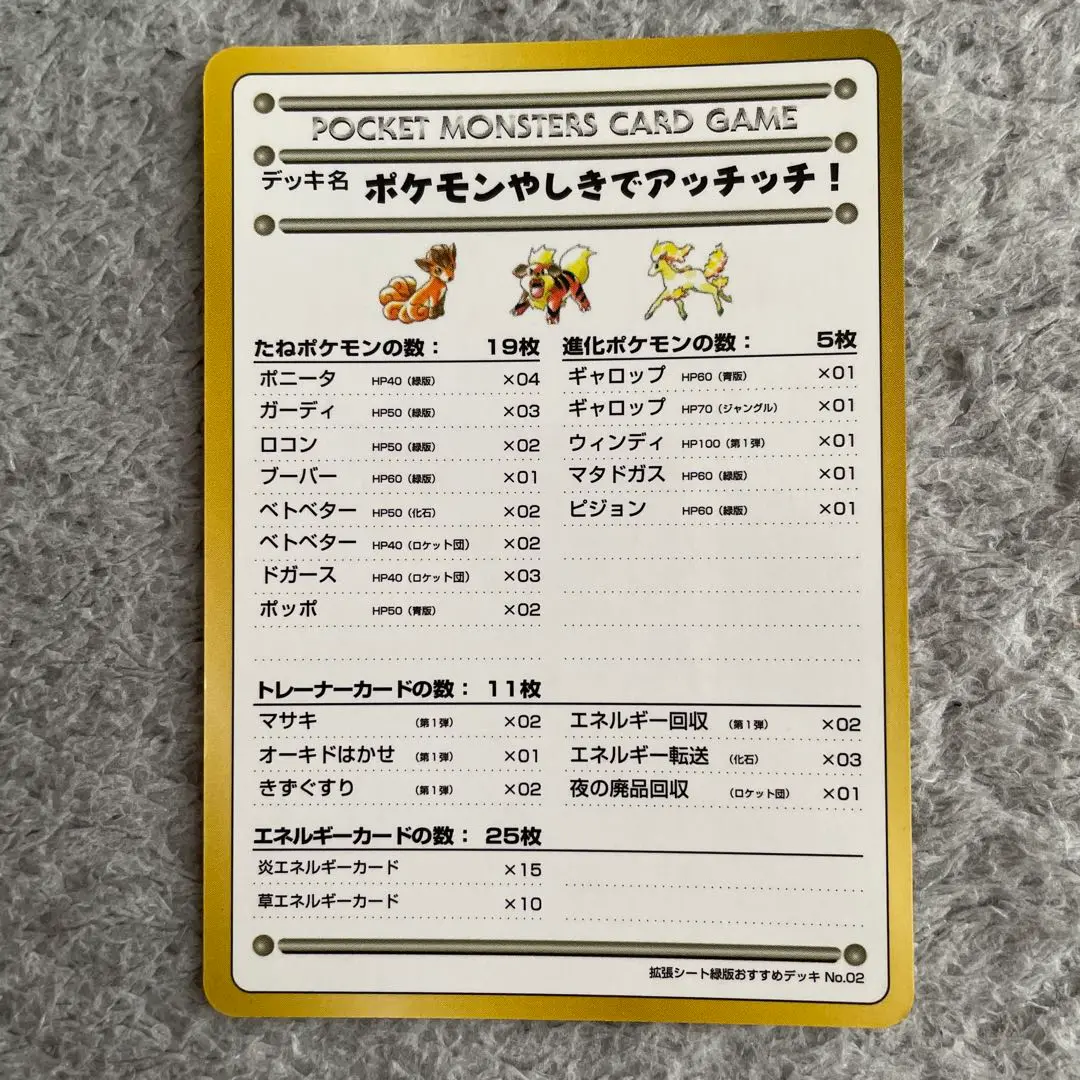 POCKET MONSTERS CARD GAME
デッキ名 ポケモンやしきでアッチッチ！
たねポケモンの数： 19枚
ポニータ HP40（緑版） ×04
ガーディ HP50（緑版） ×03
ロコン HP50（緑版） ×02
ブーバー HP60（緑版） ×01
ベトベター HP50（化石） ×02
ベトベター HP40（ロケット団） ×02
ドガース HP40（ロケット団） ×03
ポッポ HP50（青版） ×02
進化ポケモンの数： 5枚
ギャロップ HP60（青版） ×01
ギャロップ HP70（ジャングル） ×01
ウィンディ HP100（第1弾） ×01
マタドガス HP60（緑版） ×01
ピジョン HP60（緑版） ×01
トレーナーカードの数： 11枚
マサキ （第1弾） ×02
オーキドはかせ （第1弾） ×01
きずぐすり （第1弾） ×02
エネルギー回収 （第1弾） ×02
エネルギー転送 （化石） ×03
夜の廃品回収 （ロケット団） ×01
エネルギーカードの数： 25枚
炎エネルギーカード ×15
草エネルギーカード ×10
拡張シート緑版おすすめデッキ No.02